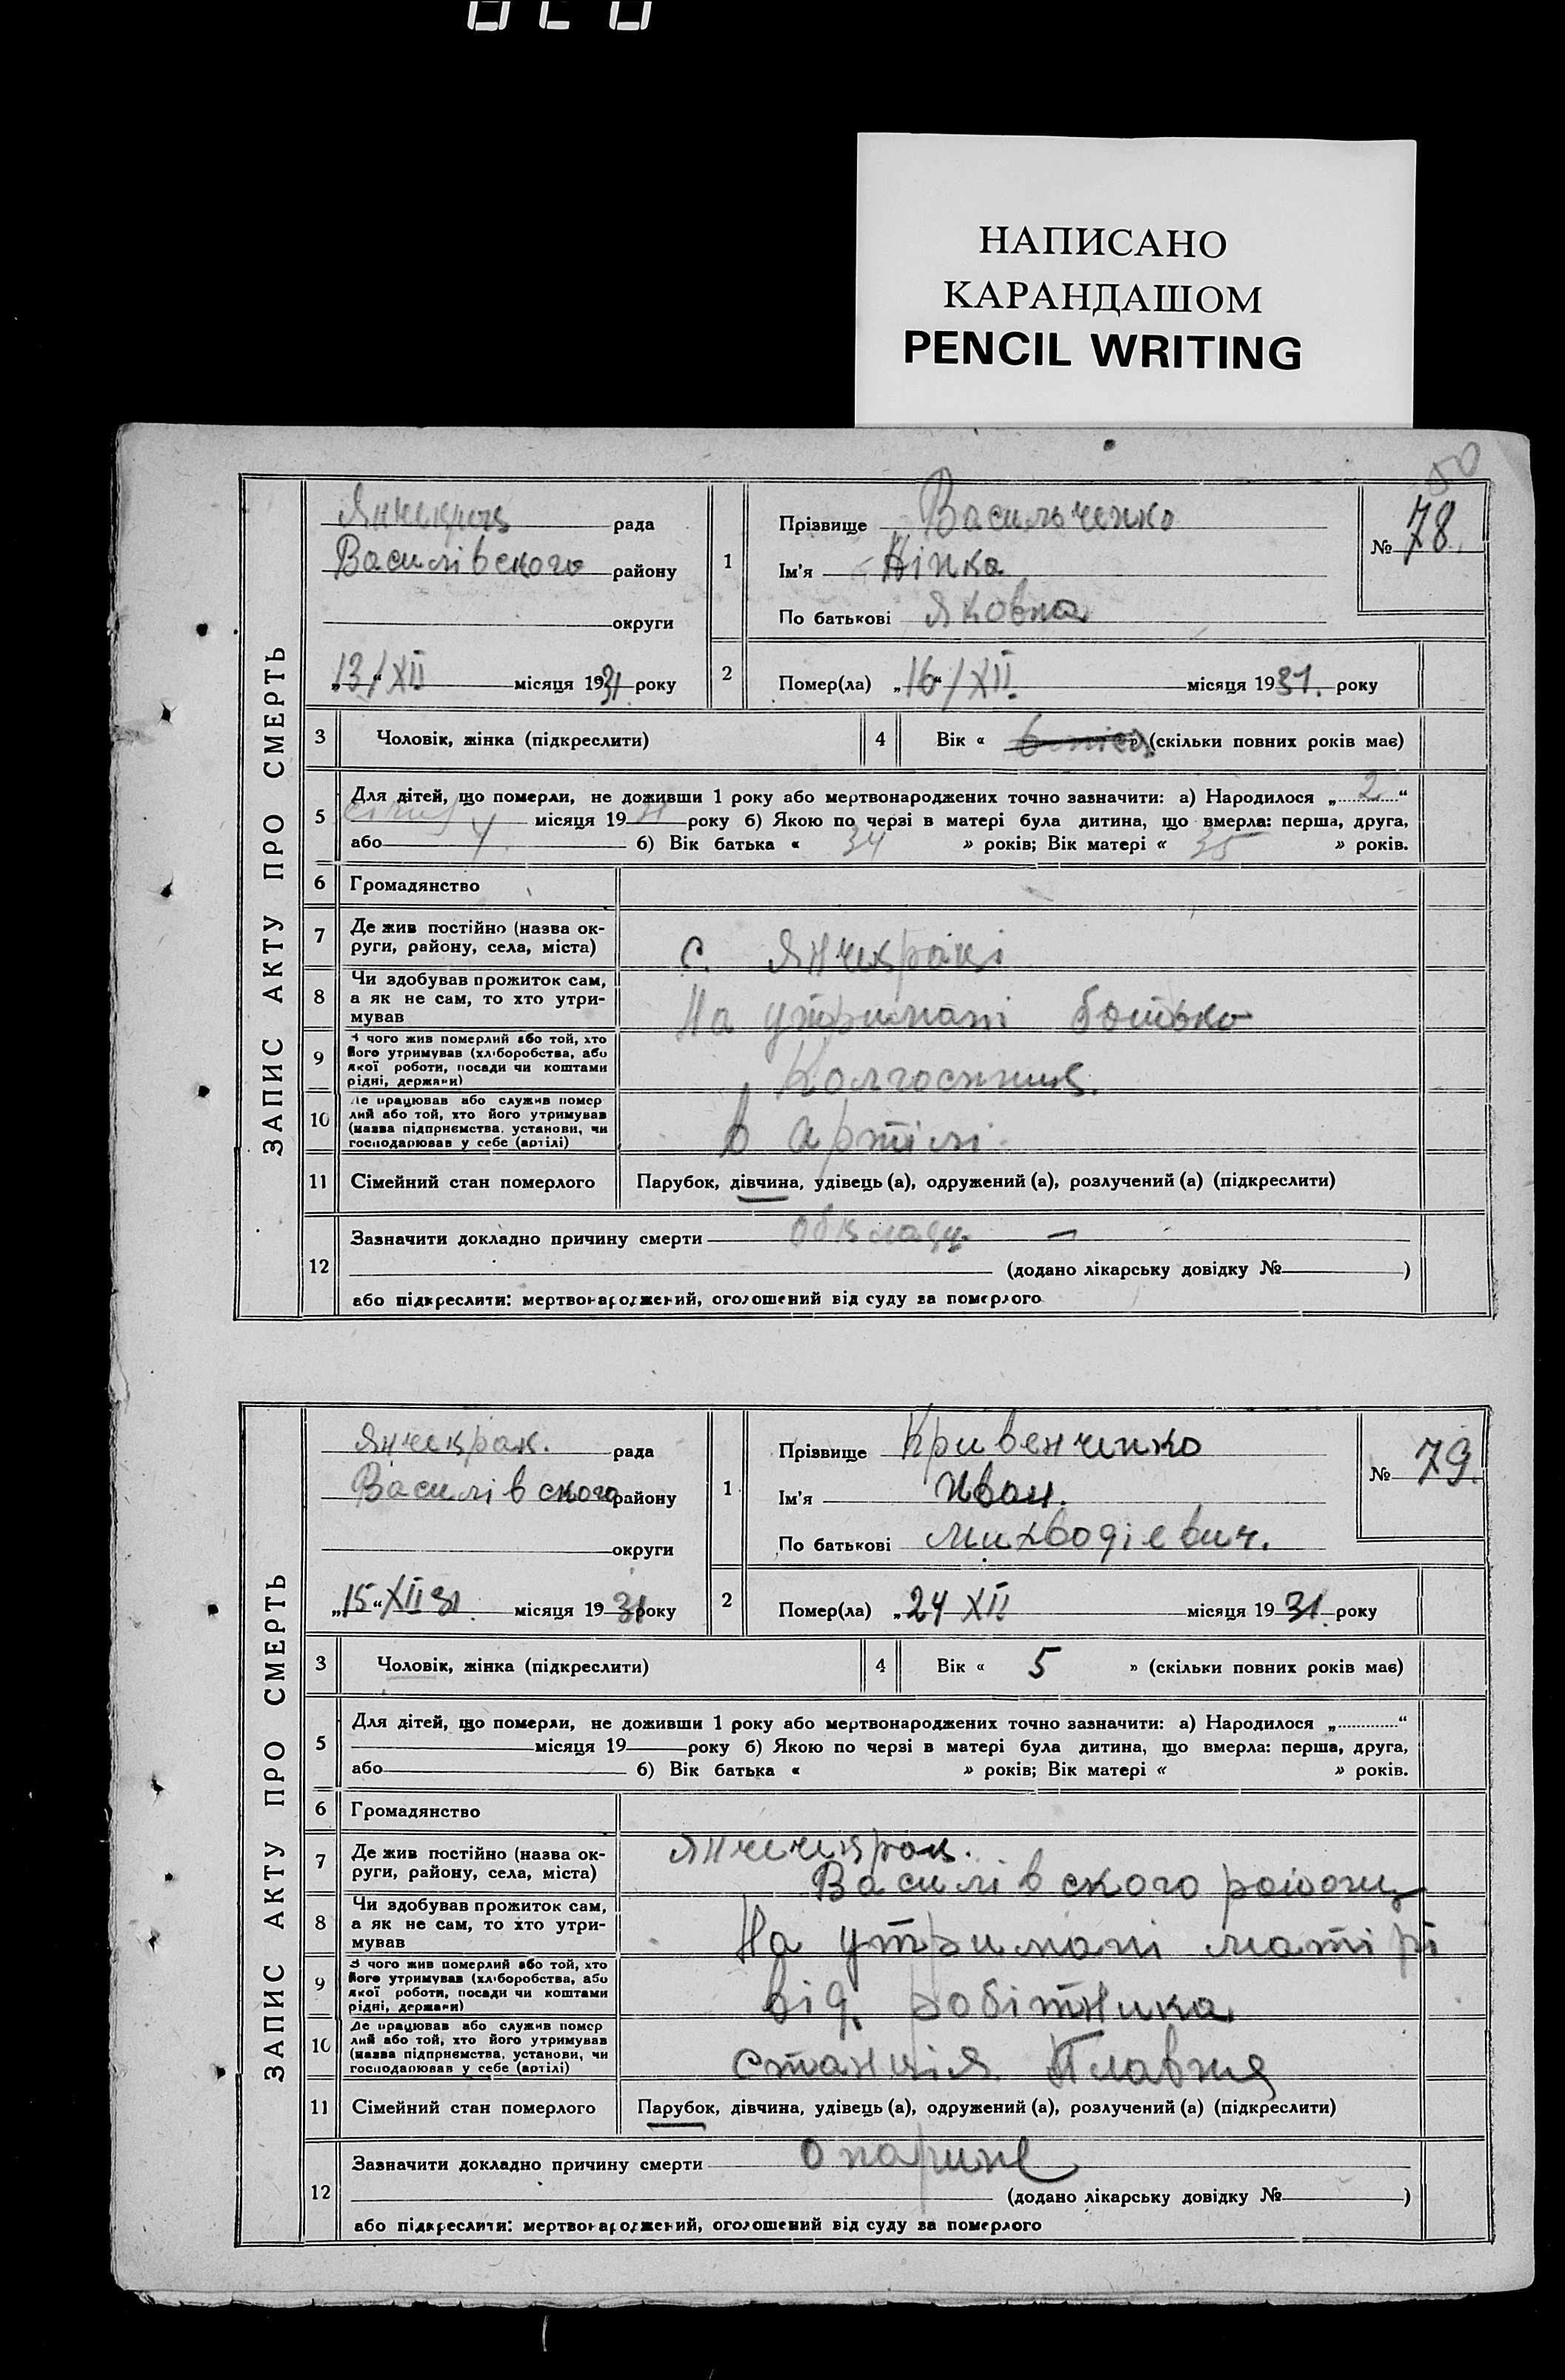 НАПИСАНО
КАРАНДАШОМ
PENCIL WRITING
50
ЗАПИС АКТУ ПРО СМЕРТЬ
рада
Василівского району
округи
„13“/XII місяця 1931 року
1
Прізвище Васильченко
Ім'я Нінка
По батькові Яковна
№ 78.
2
Помер(ла) „16“/XII. місяця 1931. року
3 Чоловік, жінка (підкреслити)
4 Вік « » (скільки повних років має)
5
Для дітей, що померли, не доживши 1 року або мертвонароджених точно зазначити: а) Народилося „2“
місяця 1931 року б) Якою по черзі в матері була дитина, що вмерла: перша, друга,
або 4 б) Вік батька « 34 » років; Вік матері « 35 » років.
6 Громадянство
7 Де жив постійно (назва ок-
руги, району, села, міста)
с. Янчекракі
8 Чи здобував прожиток сам,
а як не сам, то хто утри-
мував
На утримані батька
9 З чого жив померлий або той, хто
його утримував (хліборобства, або
якої роботи, посади чи коштами
рідні, держави)
Колгоспник.
10 Де працював або служив помер
лий або той, хто його утримував
(назва підприємства, установи, чи
господарював у себе (артілі)
в артілі
11 Сімейний стан померлого Парубок, дівчина, удівець (а), одружений (а), розлучений (а) (підкреслити)
12
Зазначити докладно причину смерти
(додано лікарську довідку № )
або підкреслити: мертвонароджений, оголошений від суду за померлого
ЗАПИС АКТУ ПРО СМЕРТЬ
Янчекрак. рада
Василівского району
округи
„15“ XII 31 місяця 1931 року
1
Прізвище Кривенченко
Ім'я Иван.
По батькові
№ 79.
2
Помер(ла) „24 XII місяця 1931. року
3 Чоловік, жінка (підкреслити)
4 Вік « 5 » (скільки повних років має)
5
Для дітей, що померли, не доживши 1 року або мертвонароджених точно зазначити: а) Народилося „ “
місяця 19 року б) Якою по черзі в матері була дитина, що вмерла: перша, друга,
або б) Вік батька « » років; Вік матері « » років.
6 Громадянство
7 Де жив постійно (назва ок-
руги, району, села, міста)
Василівского района
8 Чи здобував прожиток сам,
а як не сам, то хто утри-
мував
На утримані матірі
9 З чого жив померлий або той, хто
його утримував (хліборобства, або
якої роботи, посади чи коштами
рідні, держави)
від робітника
10 Де працював або служив помер
лий або той, хто його утримував
(назва підприємства, установи, чи
господарював у себе (артілі)
станція Плавня
11 Сімейний стан померлого Парубок, дівчина, удівець (а), одружений (а), розлучений (а) (підкреслити)
12
Зазначити докладно причину смерти опарине
(додано лікарську довідку № )
або підкреслити: мертвонароджений, оголошений від суду за померлого